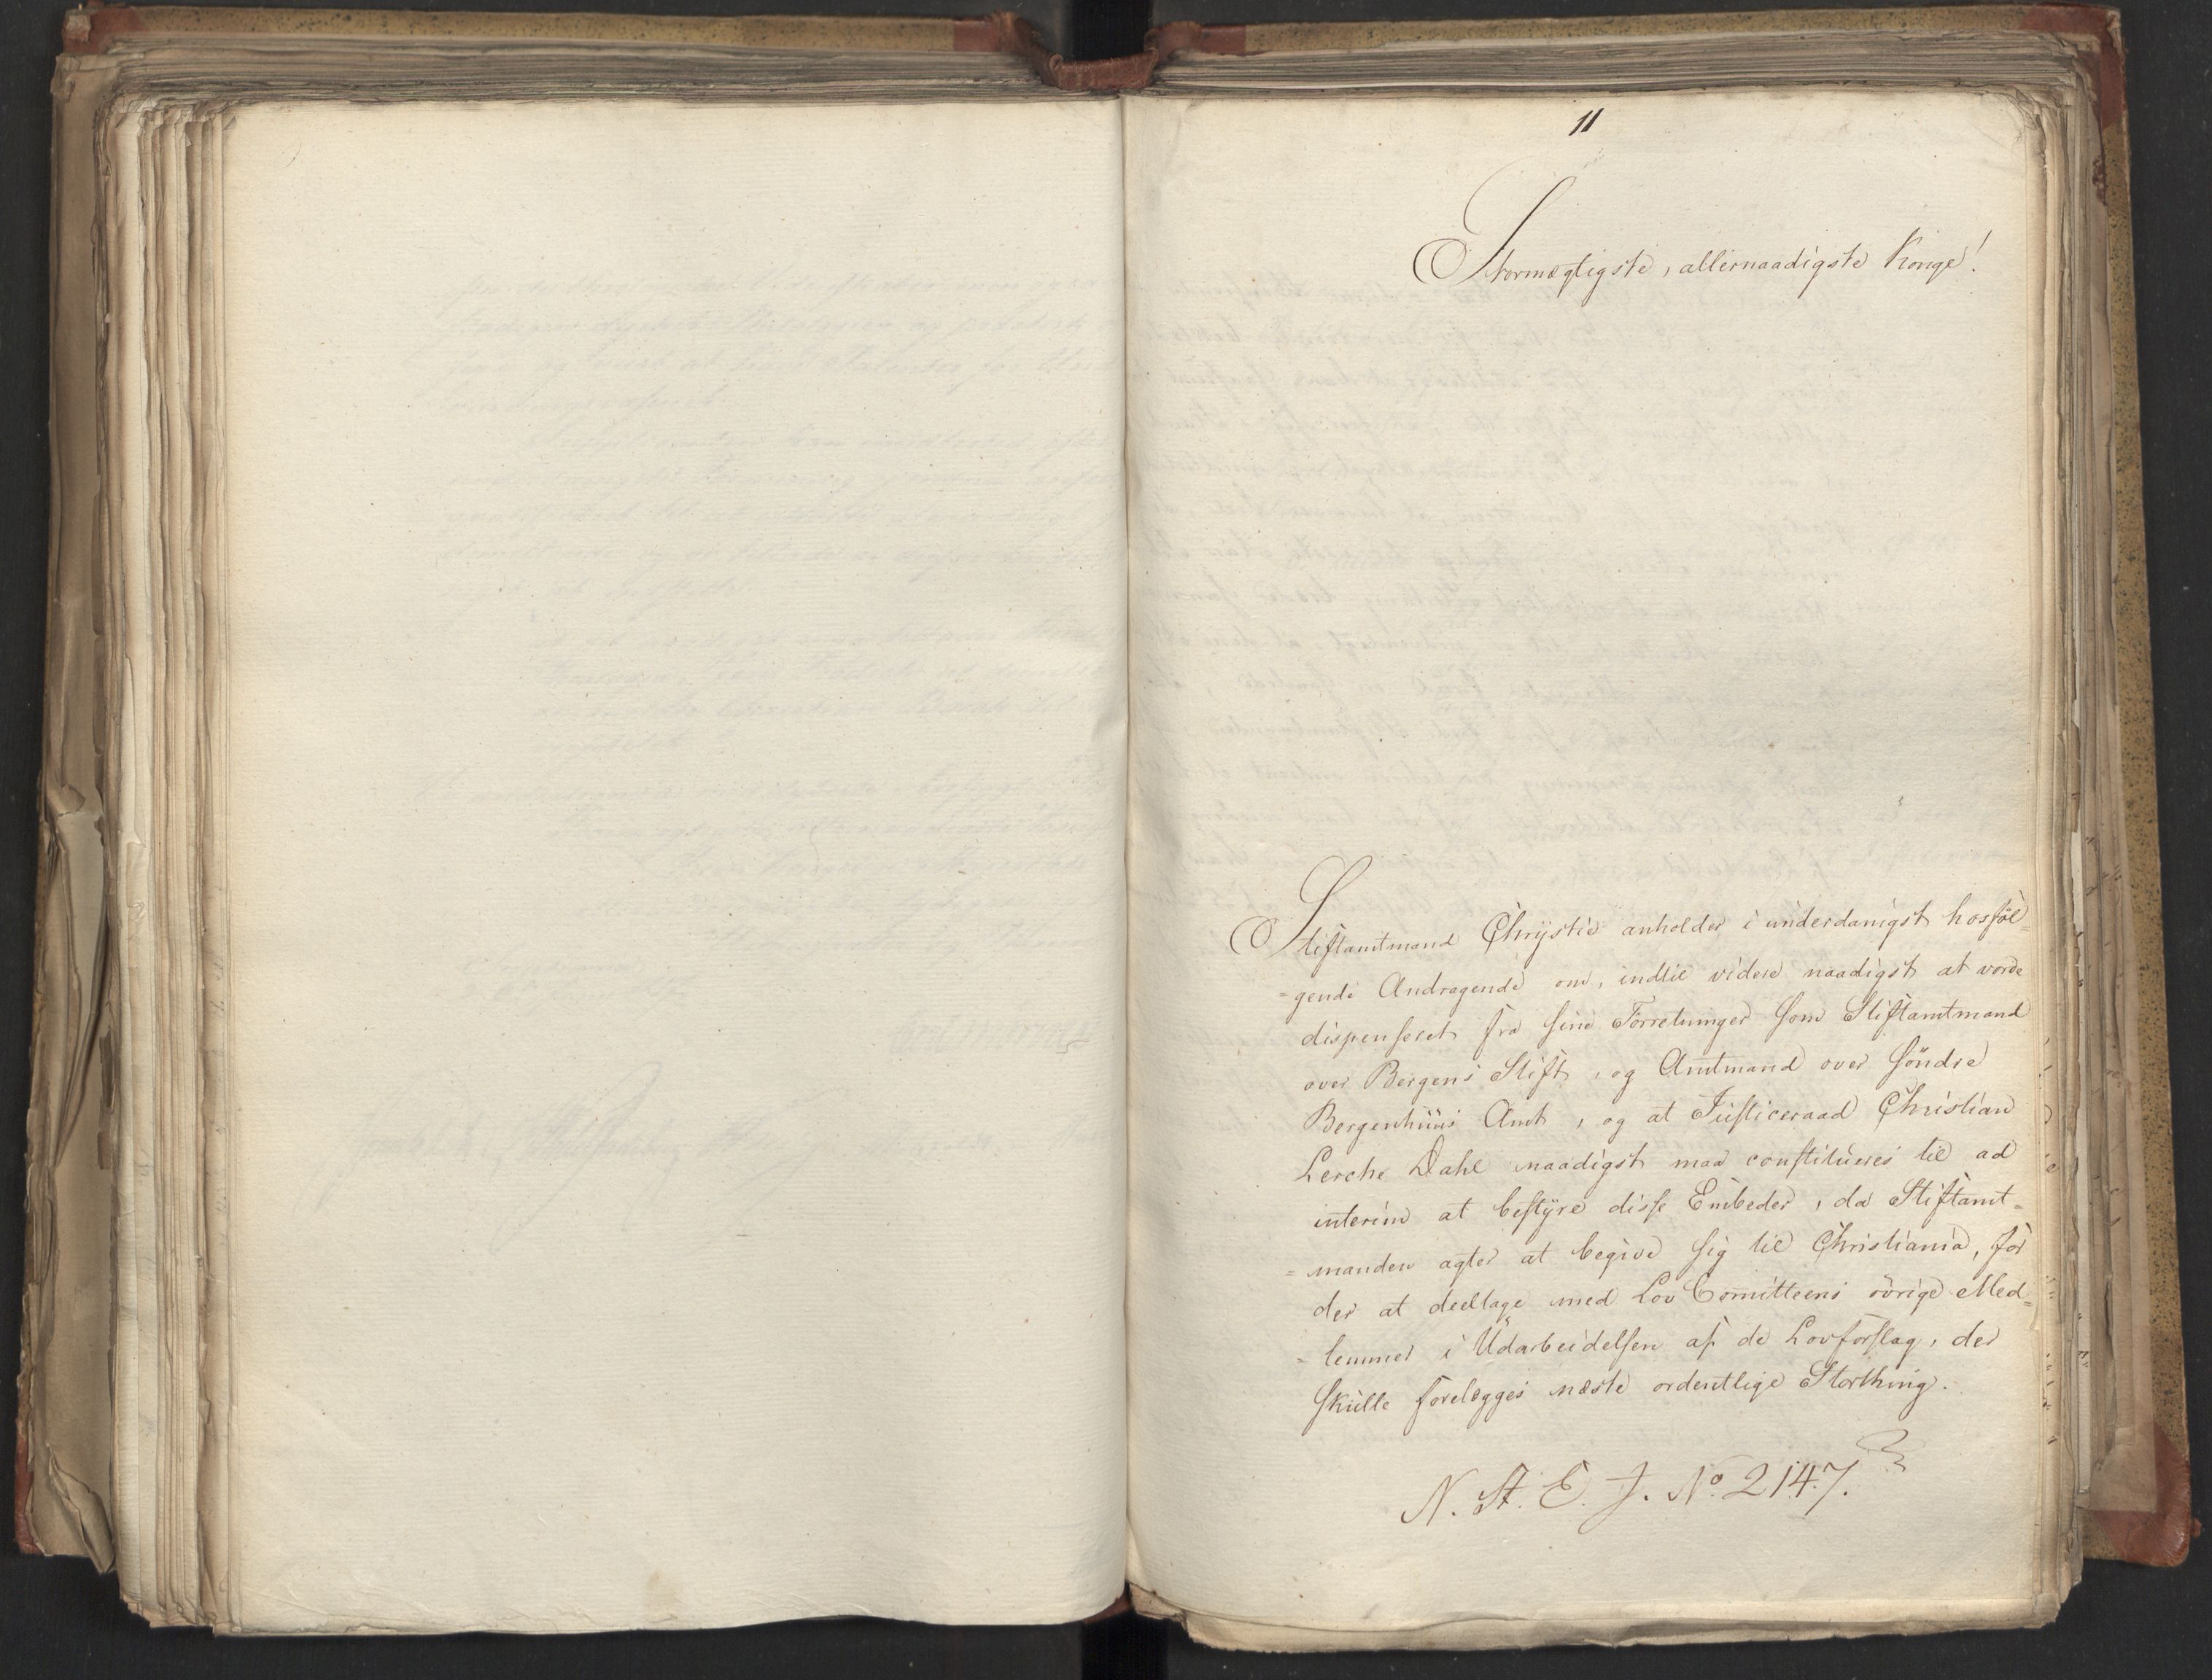 11
Stormægtigste, allernaadigste Konge!
Stiftamtmand Chrÿstie anholder i underdanigst hosføl=
=gende Andragende om, indtil videre naadigst at vorde
dispenseret fra sine Forretninger som Stiftamtmand
over Bergens Stift, og Amtmand over søndre
Bergenhuus Amt, og at Justiceraad Christian
Lerche Dahl naadigst maa constitueres til ad
interim at bestyre disse Embeder, da Stiftamt=
=manden agter at begive sig til Christiania, for
der at deeltage med Lov Comitteens øvrige Med=
=lemmer i Udarbeidelsen af de Lovforslag, der
skulle forelægges næste ordentlige Storthing.
N. St. E. J. No 2147.